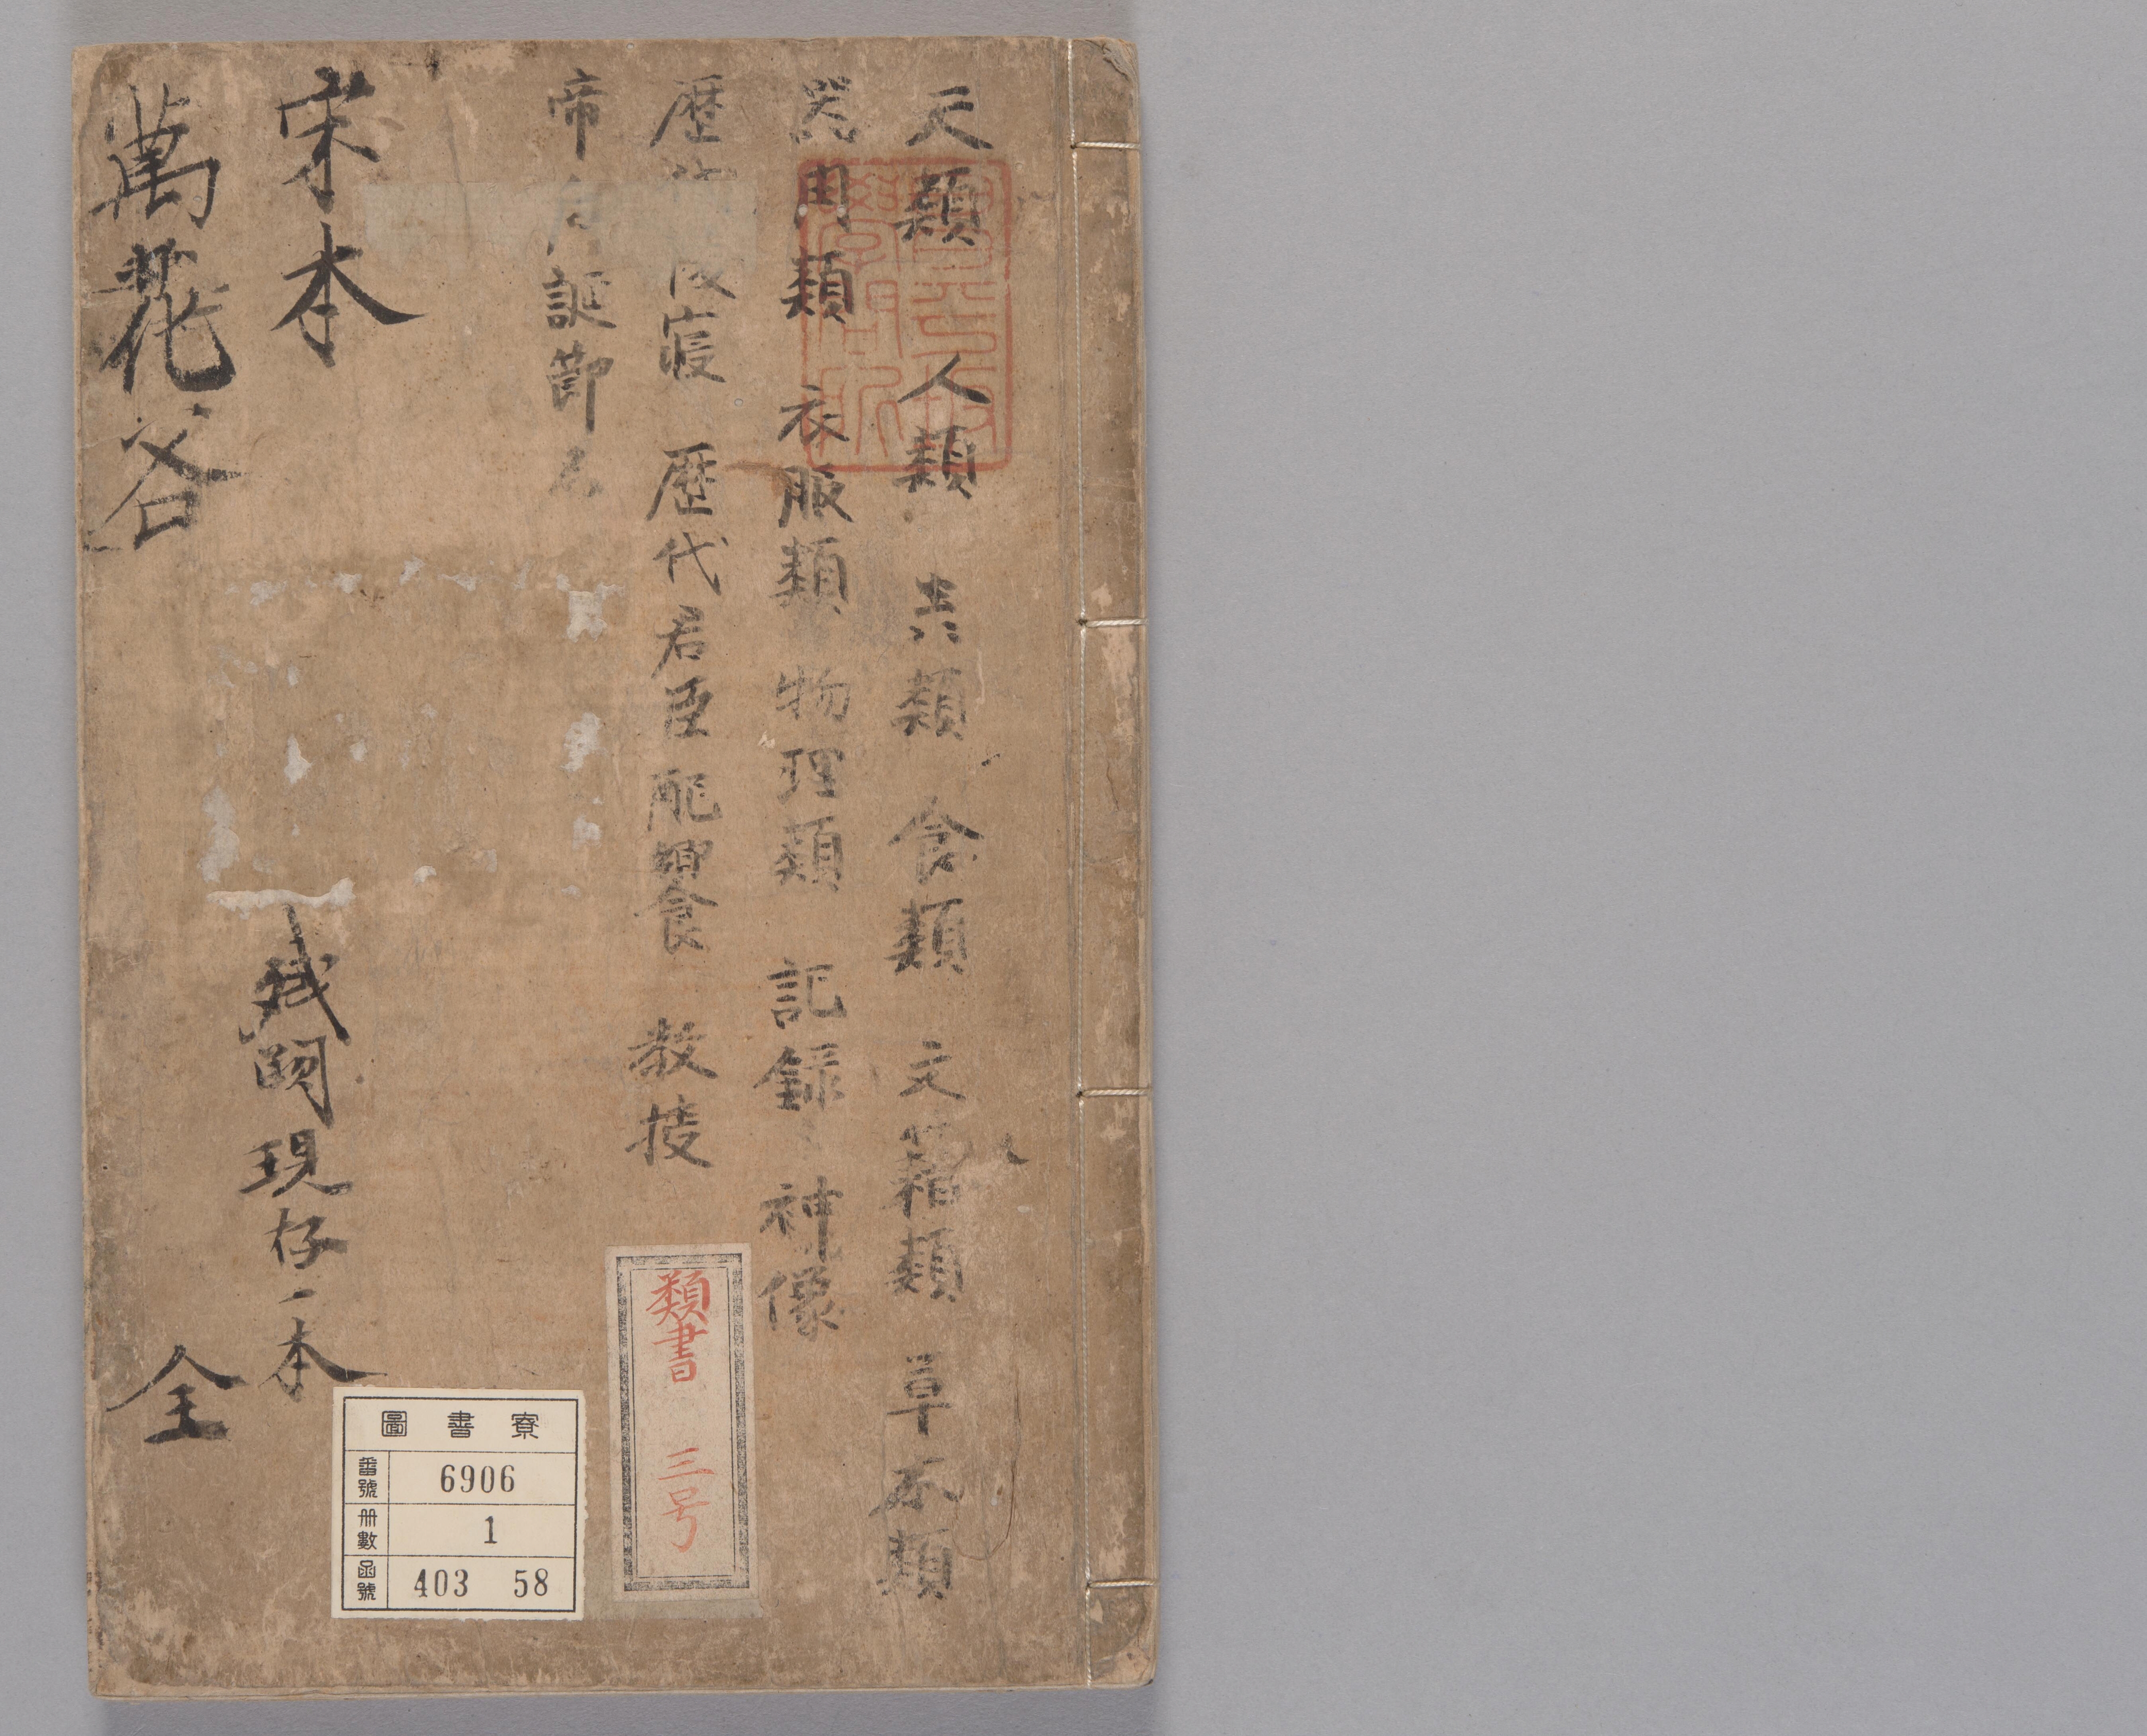 天類　人類　　類　食類　文籍類　草木類
器用類　衣服類　物理類　記録　神像
歴　　　寝　歴代君臣配饗　教授
帝　誕節名
宋本
残闕現存一本
萬花谷　全
類書　三号
圖書寮
番號 6906
册數 1
函號 403 58